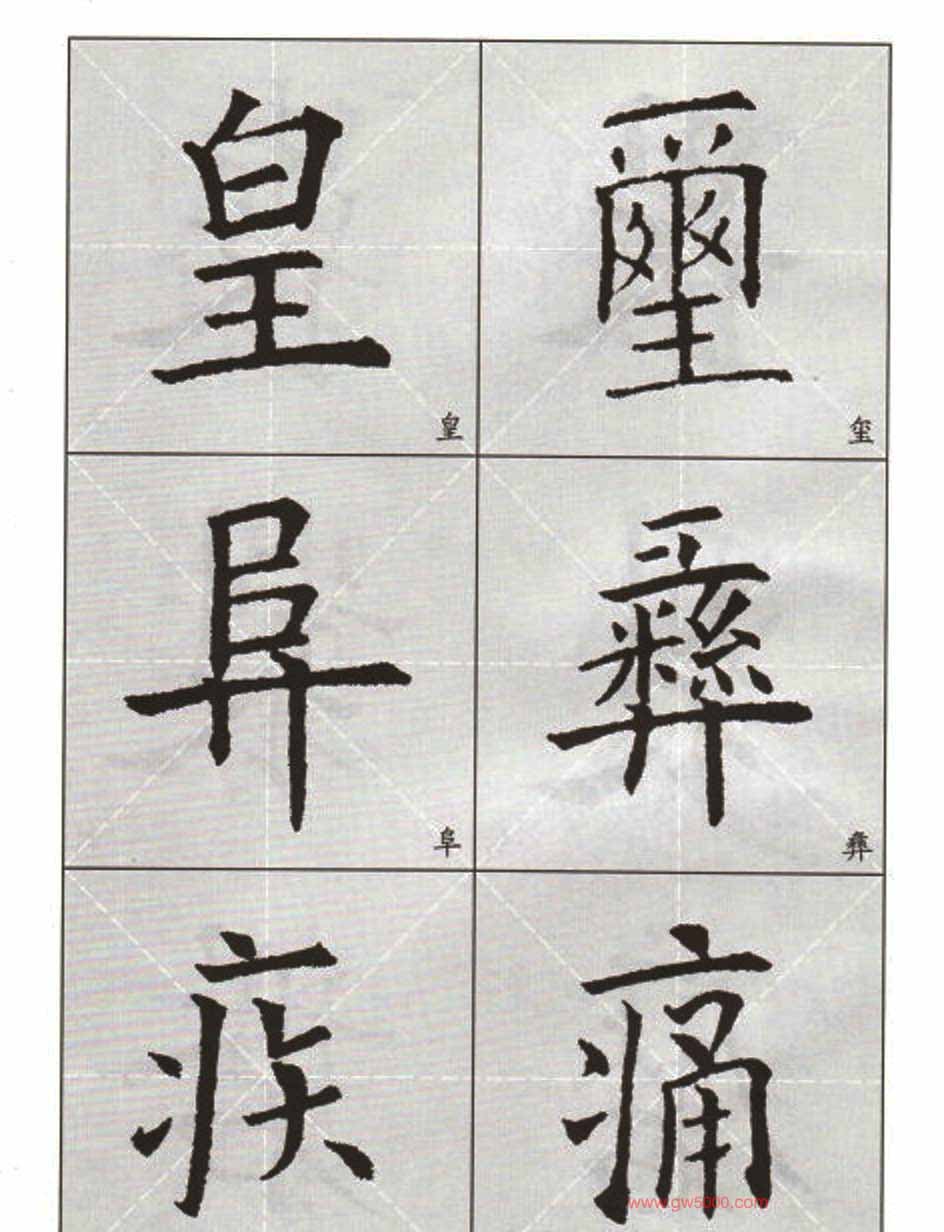 皇 璽
皇 玺
阜 彝
阜 彝
疾 痛
www.gw5000.com